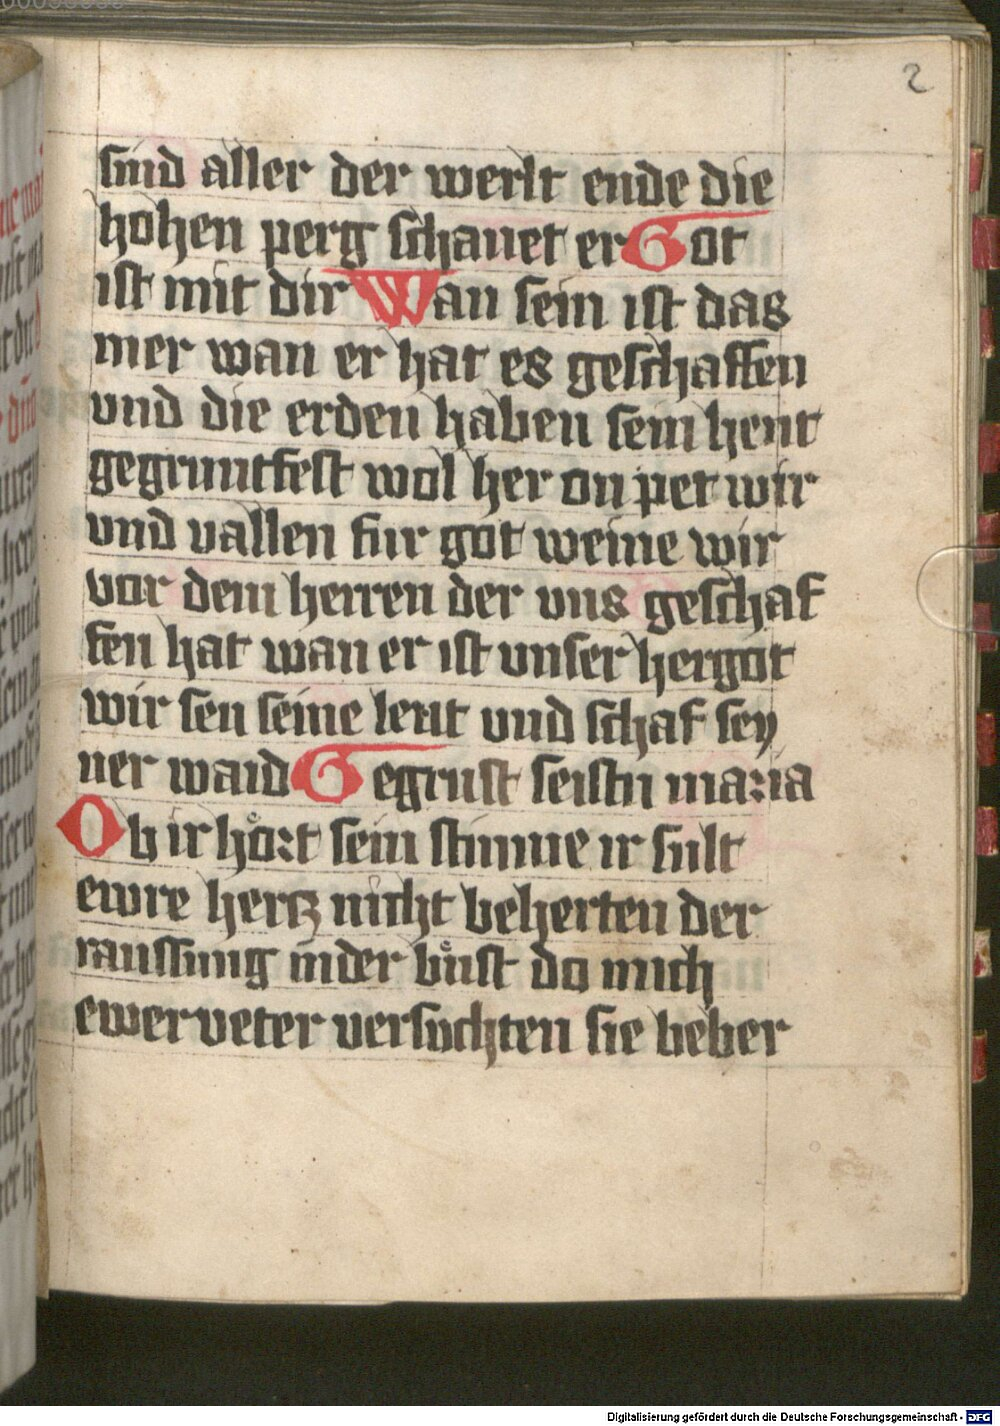 2
sind aller der werlt ende die
hohen perg schauet er Got
ist mit dir Wan sein ist das
mer wan er hat es geschaffen
vnd die erden haben sein hent
gegruntfest wol her on pet wir
vnd vallen fur got weine wir
vor dem herren der vns geschaf
fen hat wan er ist vnser hergot
wir sen seine leut vnd schaf sey
ner waid Gegrust seistu maria
Ob ir hort sein stimme ir sult
ewre hertz nicht beherten der
raussung in der bust do mich
ewer veter versuchten sie beber
Digitalisierung gefördert durch die Deutsche Forschungsgemeinschaft - DFG